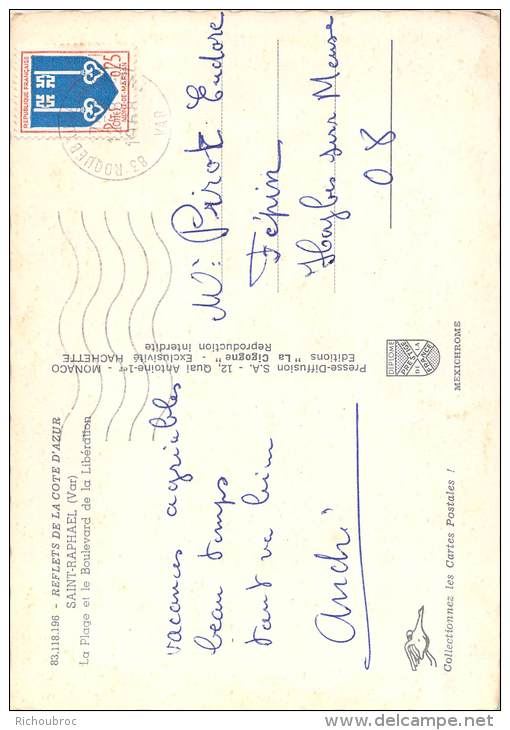 83.118.196 - REFLETS DE LA COTE D'AZUR
SAINT-RAPHAEL (Var)
La Plage et le Boulevard de la Libération
vacances agréables
beau temps
tout va bien
André
Collectionnez les Cartes Postales !
Presse-Diffusion S.A. 12, Quai Antoine-1er - MONACO
Editions " La Cigogne " - Exclusivité HACHETTE
Reproduction interdite
REPUBLIQUE FRANÇAISE
POSTES
0,25
MONT-DE-MARSAN
83 ROQUEB
VAR
Mr Pirot Eudore
Fépin
Haybes sur Meuse
08
DIPLOME
PRESTIGE
DE LA
FRANCE
MEXICHROME
Richoubroc
delcampe.net